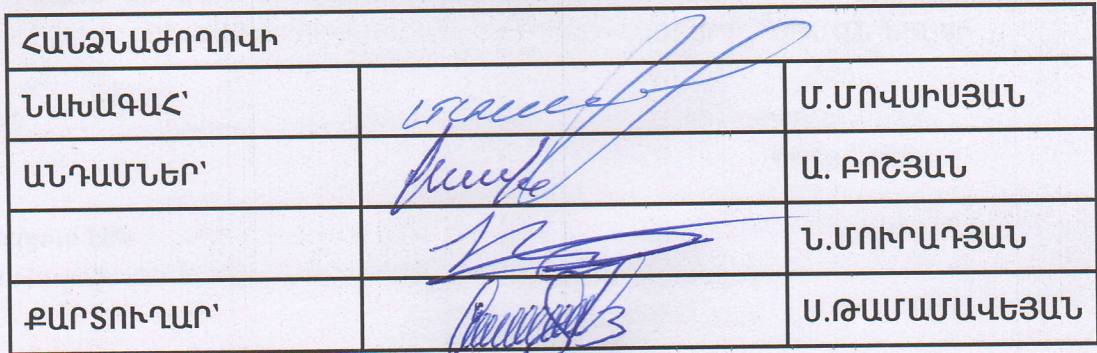 ՀԱՆՁՆԱԺՈՂՈՎԻ
ՆԱԽԱԳԱՀ՝ Մ.ՄՈՎՍԻՍՅԱՆ
ԱՆԴԱՄՆԵՐ՝ Ա. ԲՈՇՅԱՆ
Ն.ՄՈՒՐԱԴՅԱՆ
ՔԱՐՏՈՒՂԱՐ՝ Ս.ԹԱՄԱՄԱՎԵՅԱՆ